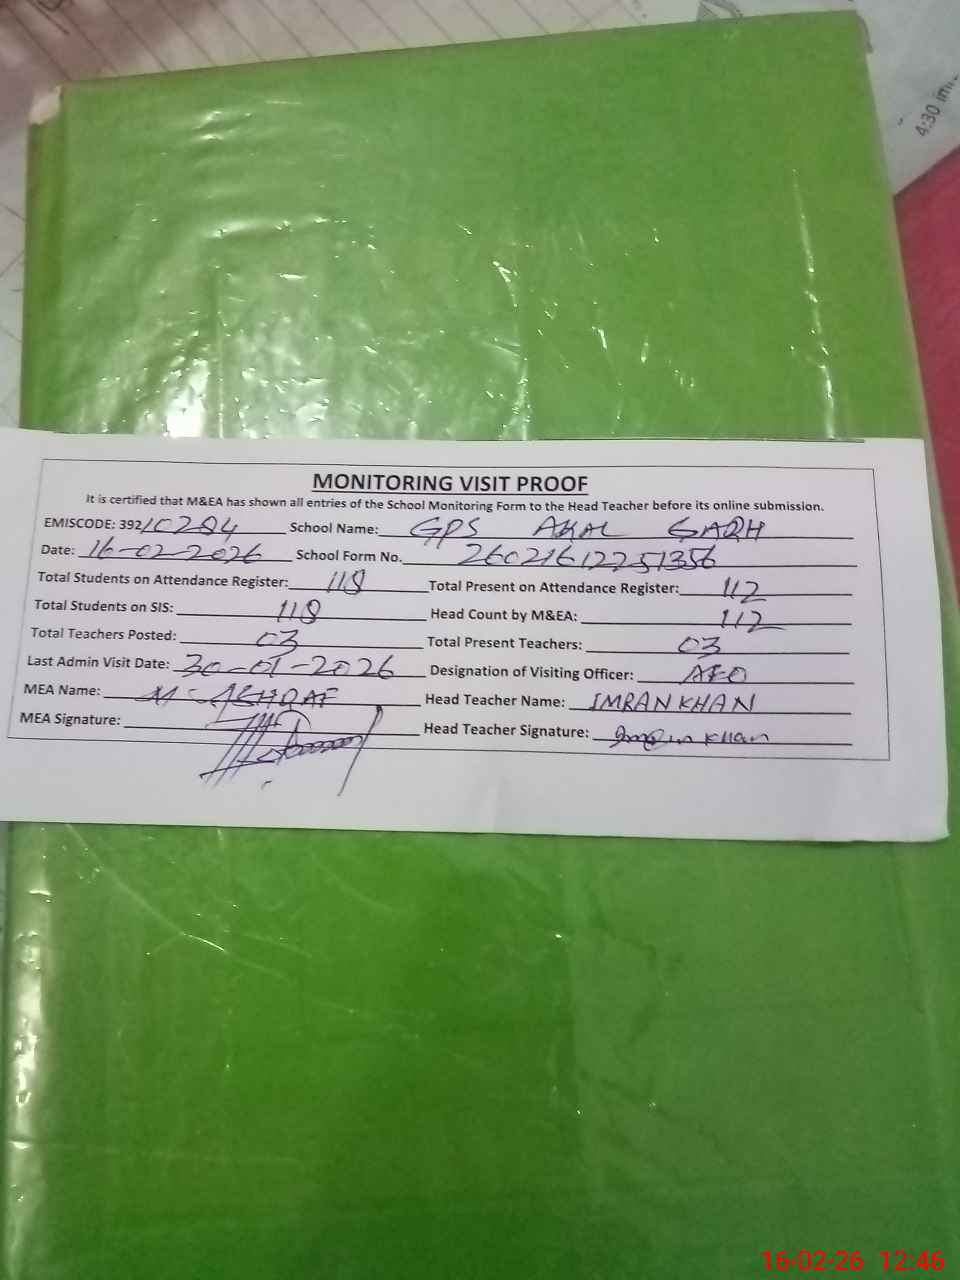 4:30
MONITORING VISIT PROOF
It is certified that M&EA has shown all entries of the School Monitoring Form to the Head Teacher before its online submission.
EMISCODE: 39210204 School Name: GPS AKAL GARH
Date: 16-02-2026 School Form No. 26021612251356
Total Students on Attendance Register: 118 Total Present on Attendance Register: 112
Total Students on SIS: 118 Head Count by M&EA: 112
Total Teachers Posted: 03 Total Present Teachers: 03
Last Admin Visit Date: 30-01-2026 Designation of Visiting Officer: AEO
MEA Name: M-ASHRAF Head Teacher Name: IMRAN KHAN
MEA Signature: Head Teacher Signature: Imran Khan
16-02-26 12:46